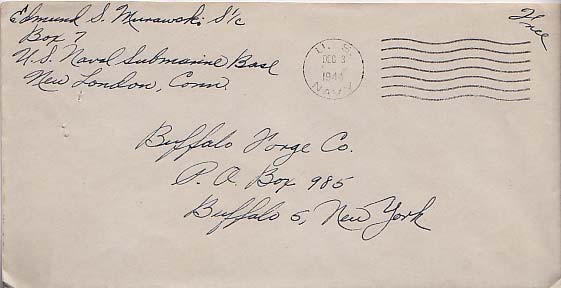 Edmund S. Murawski S1/c
Free
Box 7
U.S. Naval Submarine Base
New London, Conn.
U. S.
DEC 3
1944
NAVY
Buffalo Forge Co.
P. O. Box 985
Buffalo 5, New York